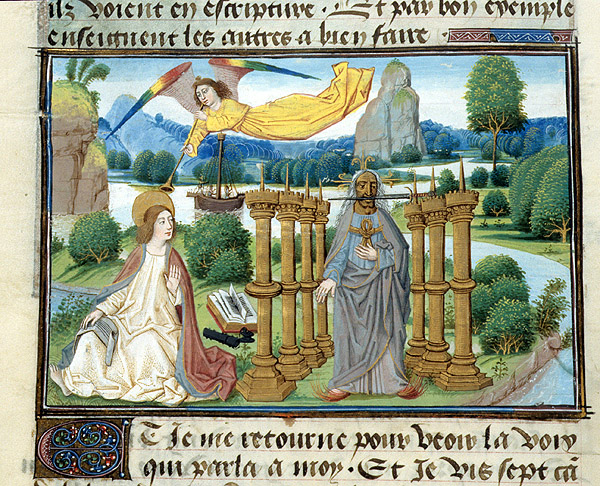 ilz voient en escripture · Et par bon exemple
enseignent les autres a bien faire ·
Et Je me retourne pour veoir la voix
qui parla a moy · Et Je vis sept cã